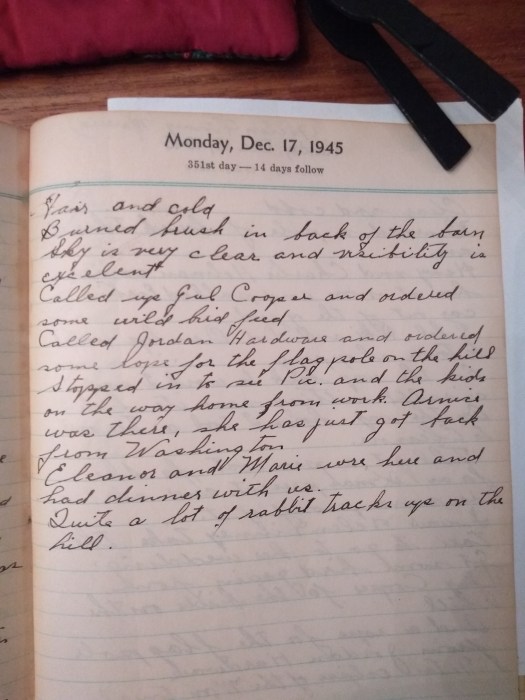 Monday, Dec. 17, 1945
351st day — 14 days follow
Fair and cold
Burned brush in back of the barn
Sky is very clear and visibility is
excelent
Called up Cooper and ordered
some wild bird feed
Called Jordan Hardware and ordered
some rope for the flag pole on the hill
Stopped in to see and the kids
on the way home from work.
was there, she has just got back
from Washington
Eleanor and Marie were here and
had dinner with us.
Quite a lot of rabbit tracks up on the
hill.